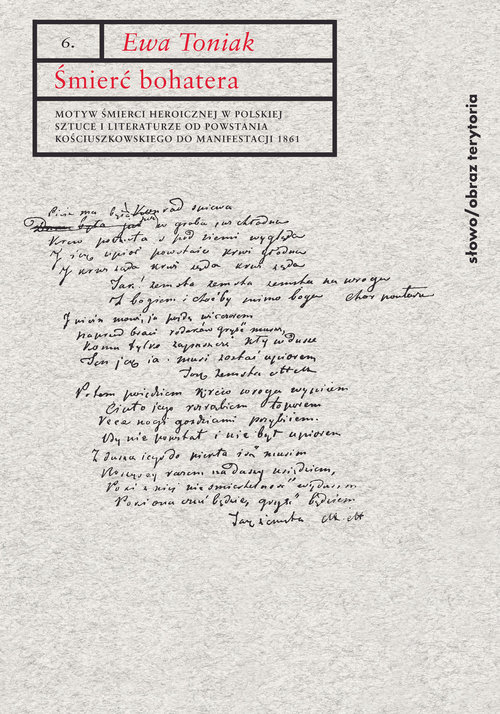 6.
Ewa Toniak
Śmierć bohatera
MOTYW ŚMIERCI HEROICZNEJ W POLSKIEJ
SZTUCE I LITERATURZE OD POWSTANIA
KOŚCIUSZKOWSKIEGO DO MANIFESTACJI 1861
słowo/obraz terytoria
Pieśń ma była Konrad śpiewa
była już w grobie już chłodna
Krew poczuła s pod ziemi wygląda
I jak upior powstaie krwi głodna
I krwi żąda krwi żąda krwi żąda
Tak! zemsta zemsta zemsta na wroga
Z bogiem i choćby mimo boga chor powtarza
I pieśń mowi ja pojdę wieczorem
naprzod braci rodakow gryść muszę,
Komu tylko zapuszczę kły w duszę
Ten jak ia musi zostać upiorem
Tak zemsta
Potem poidziem krew wroga wypiiem
Ciało jego rozrabiem toporem
Ręce nogi goździami przybijem.
By nie powstał i nie był upiorem
Z duszą iego do piekła iść musim
Wszyscy razem na duszy usiędziem,
Poki z niey nieśmiertelność wydusim
Poki ona czuć będzie, gryść będziem
Tak zemsta